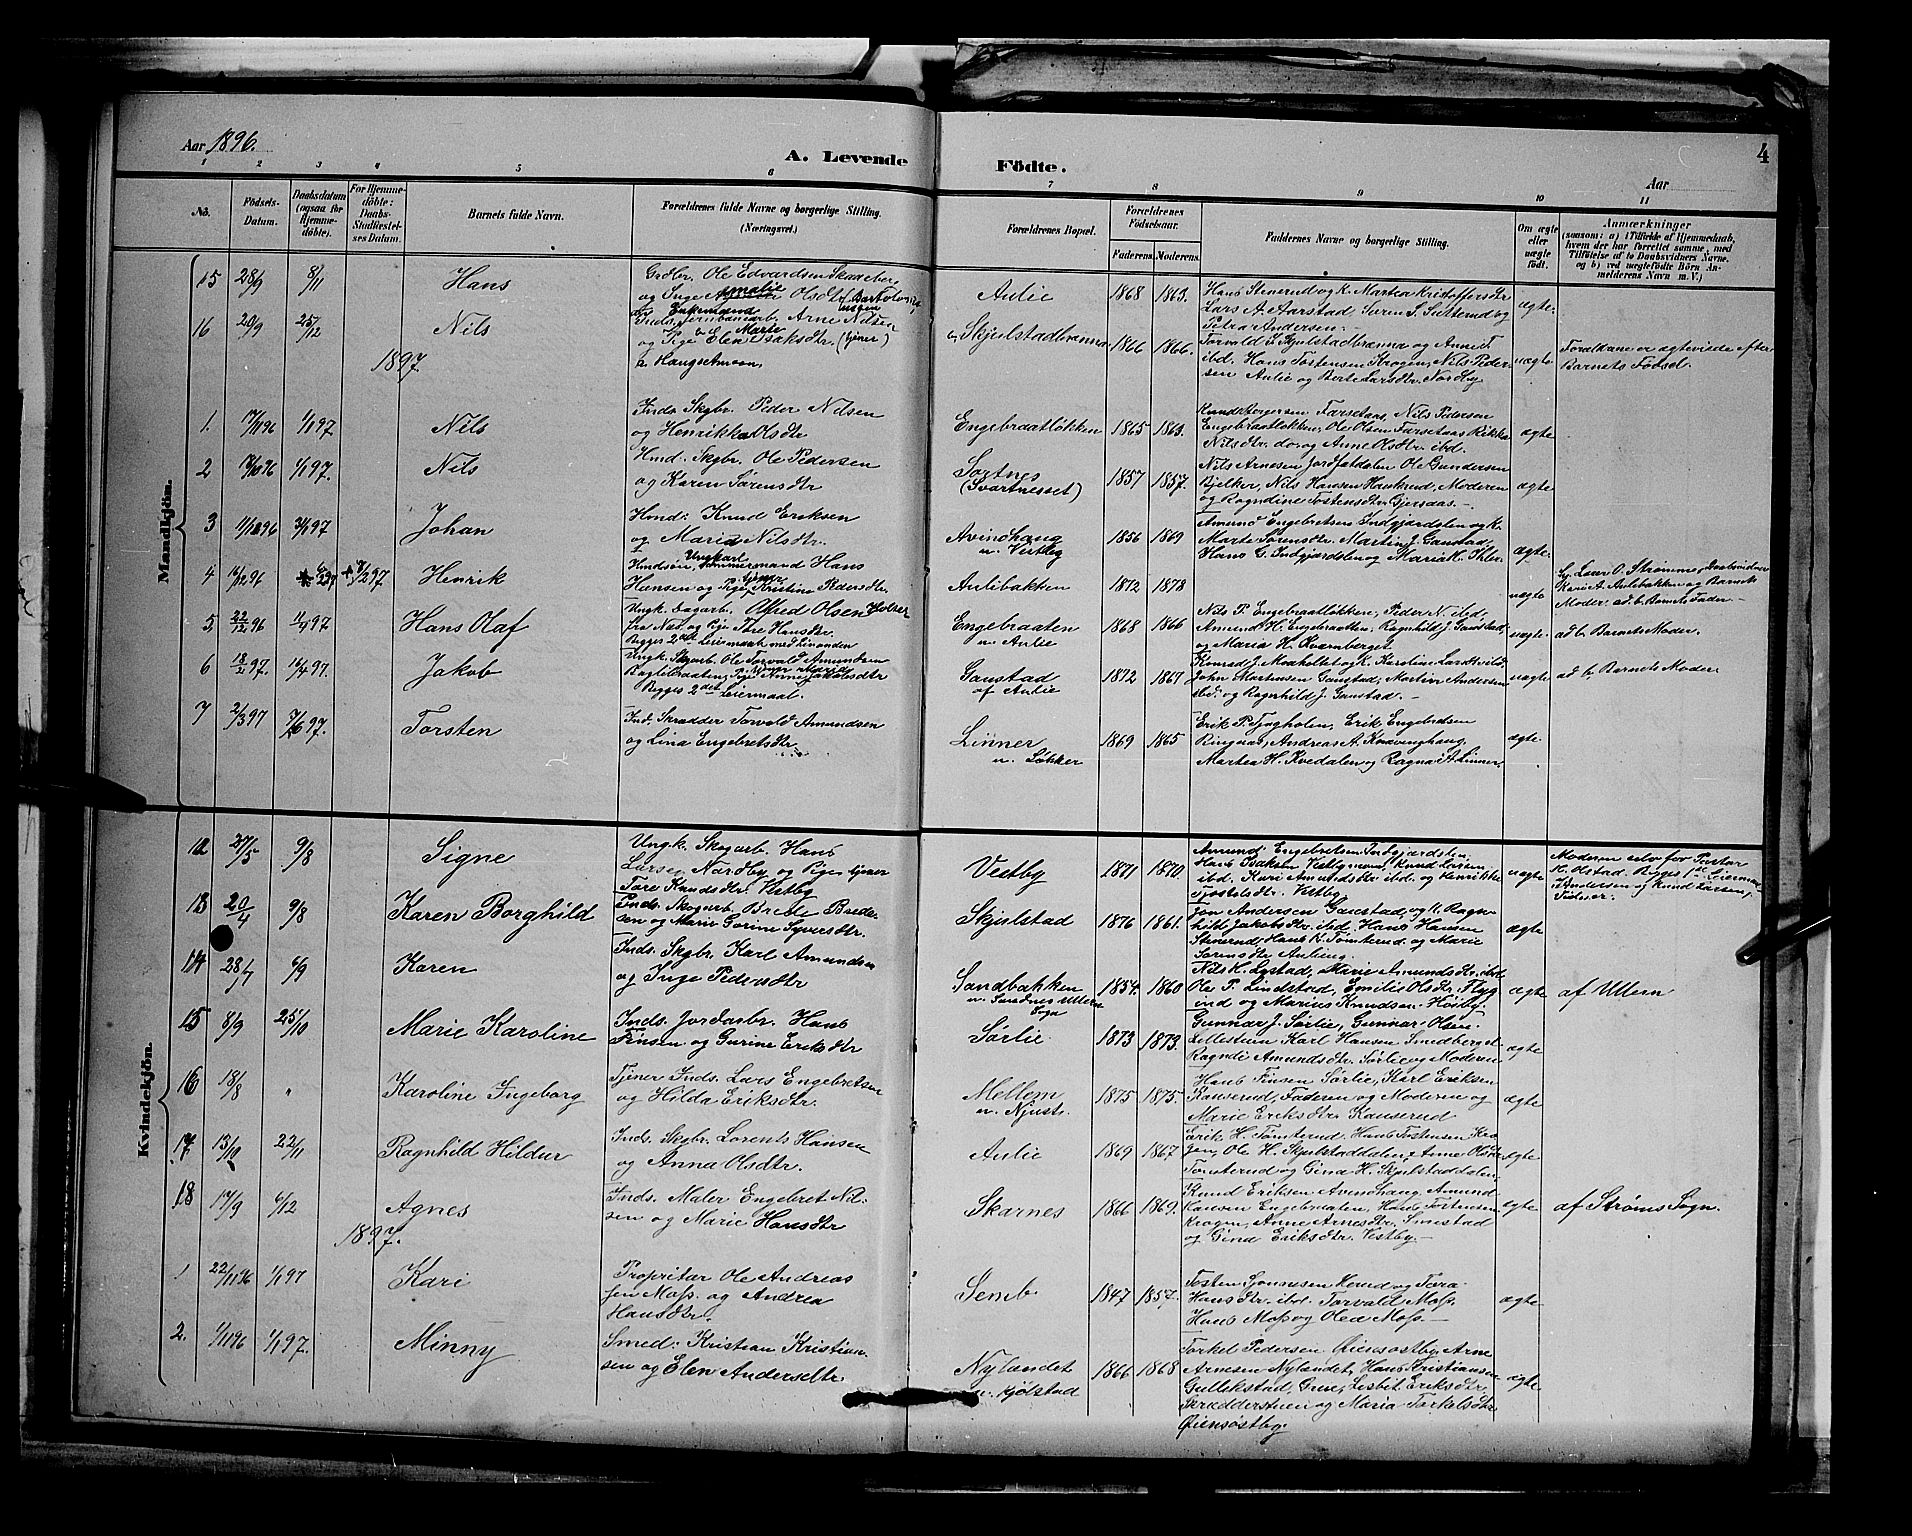 Aar 1896.
A. Levende Födte.
4
Aar
1 2 3 4 5 6 7 8 9 10 11
No.
Födsels-
Datum.
Daabsdatum
(ogsaa for
Hjemme-
döbte).
For Hjemme-
döbte:
Daabs-
Stadfæstel-
ses Datum.
Barnets fulde Navn.
Forældrenes fulde Navne og borgerlige Stilling.
(Næringsvei.)
Forældrenes Bopæl.
Forældrenes
Födselsaar.
Faderens. Moderens.
Faddernes Navne og borgerlige Stilling.
Om ægte
eller
uægte
födt.
Anmærkninger
(saasom: a) i Tilfælde af Hjemmedaab,
hvem der har forrettet samme, med
Tilföielse af to Daabsvidners Navne.
og b) ved uægtefödte Börn An-
melderens Navn m. V.)
Mandkjön.
15 28/9 8/11 Hans
Ole Edvardsen
og Inge Olsdtr
Aulie 1868 1863.
Hans Stenerud og K. Martea Kristoffersdtr
Lars A. Aarstad, Søren S. Sætterud og
Petra Andersen.
ægte.
16 20/9 25/12 Nils
Arne Nilsen
og Pige Elen Isaksdtr. (tjener)
Skjulstadbrænna 1866 1866.
Torvald S. Skjulstadbrænna og Anne T.
ibd. Hans Tostensen Krogen, Nils Peder-
sen Aulie og Berte Larsdtr. Nordby
uægte
Forældrene er ægteviede efter
Barnets Födsel.
1897.
1. 17/11 96 1/1 97 Nils
Inds. Skgbr. Peder Nilsen
og Henrikka Olsdtr
Engebraatløkken 1865 1863.
Knud Børgersen Farsetaas, Nils Pedersen
Engebraatløkken, Ole Olsen Farsetaas Rikka
Nilsdtr. do. og Anne Olsdtr. ibd.
ægte
2 1/1 97. Nils
Hmd. Skgbr. Ole Pedersen
og Karen Sørensdtr
Sortnes
(Svartnesset)
1857 1857.
Nils Arnesen Jordfaldalen Ole Gundersen
Bjelker, Nils Hansen Huskrud, Moderen
og Ragndine Tostensdtr. Gjersaas.
ægte
3 Johan
Hmd: Knud Eriksen
og Maria Nilsdtr.
Avindhaug
u. Vestby
1856 1869
Amund Engebretsen Indgjærdslen og K.
Marte Sørensdtr. Martin J. Gaustad,
Hans G. Indgjærdslen og Maria K.
ægte.
4 Henrik
Ungkarl
Hans
Hansen og Pige Kristine Pedersdtr.
Aulibakken 1872 1878
uægte
O. Strømme, Daabsvidner
Kari A. Aulibakken og Barnets
Moder. ad b. Barnets Fader
5 Hans Olaf
Ungk. Dagarb. Alfred Olsen
fra Nes og Pige Tore Hansdtr.
Begges 2det Leiermaal med hinanden
Engebraaten
u. Aulie
1868 1866
Nils P. Engebraatløkken, Peder N. ibd.
Amund H. Engebraatten, Ragnhild J. Gaustad,
og Maria H. Kvernberget
uægte
ad b. Barnets Moder.
6 18/2 97. 16/4 97. Jakob
Ungk. Skgarb. Ole Torvald Amundsen
Pige Anne Jakobsdtr
Begges 2det Leiermaal.
Gaustad
af Aulie
1872 1867
Konrad J. Moaholtet og K. Karoline Larsdtr. ibd.
John Mortensen Gaustad, Martin Andersen
ibd. og Ragnhild J. Gaustad.
uægte
ad b. Barnets Moder
7 2/3 97 7/6 97. Torsten
Ind. Skrædder Torvald Amundsen
og Lina Engebretsdtr.
Linner
u. Løkker
1869 1865
Erik P. Tjugholen, Erik Engebretsen
Ringnæs, Andreas A. Knævinghaug,
Martea H. Kvedalen og Ragna A. Linner.
ægte.
Kvindekjön.
12 27/5 9/8 Signe
Ungk. Skogarb. Hans
Larsen Nordby og Pige tjener
Tore Knudsdtr. Vestby
Vestby 1871 1870.
Amund Engebretsen Indgjærdslen,
Hans Isaksen Vestbymoen, Knud Larsen
ibd. Kari Amundsdtr ibd. og Henrikke
Vestby.
uægte
Moderen selv for Pastor
Holstad. Begges 1ste Leiermaal
13 20/4 9/8 Karen Borghild
Inds. Skogarb. Brede Brede-
sen og Marie Gorine Syversdtr.
Skjulstad 1876 1861.
Jon Andersen Gaustad, og K. Ragn-
hild Jakobsdtr. ibd. Hans Hansen
Stenerud, Hans K. Tømterud og Marie
Sørensdtr Aulieng.
ægte
14 28/7 6/9 Karen
Inds. Skgbr. Karl Amundsen
og Inge Pedersdtr
Sandbakken
u. Sandnes Ullern
Sogn
1854. 1860
Nils K. Lystad, Marie Amundsdtr. ibd.
Ole P. Lindstad, Emilie Olsdtr. Flyg-
ind og Marius Knudsen Høiby.
ægte
af Ullern
15 8/9 25/10 Marie Karoline
Inds. Jordarbr. Hans
Finsen og Gurine Eriksdtr
Sørlie 1873 1873.
Gunnar J. Sørlie, Gunnar Olsen
Lillestuen Karl Hansen Smedberget
Ragndi Amundsdtr. Sørlie og Moderen
ægte
16 18/8 " Karoline Ingeborg
Tjener Inds. Lars Engebretsen
og Hilda Eriksdtr.
Mellem
u. Njust.
1875 1875.
Hans Finsen Sørlie, Karl Eriksen
Kanserud, Faderen og Moderen og
Marie Eriksdtr. Kanserud
ægte
17 13/10 22/11 Ragnhild Hildur
Inds. Skgbr. Lorents Hansen
og Anna Olsdtr.
Aulie 1869 1867.
Erik H. Tømterud, Hans Tostensen Kro-
gen, Ole H. Skjulstaddalen, Anne Olsdtr.
Tomterud og Gina H. Skjulstaddalen
ægte
18 17/9 6/12 Agnes
Inds. Maler Engebret Nil-
sen og Marie Hansdtr
Skarnes 1866 1869.
Knud Eriksen Avindhaug, Amund
Hansen Engebraaten, Hans Tostensen
Krogen, Anne Arnesdtr. Smestad
og Gina Eriksdtr. Vestby.
ægte
af Strøms Sogn.
1897.
1 22/11 96 1/1 97 Kari
Proprietær Ole Andreas
sen Moss. og Andrea
Hansdtr.
Semb 1847 1857.
Tosten Simensen Herud og Tora
Hansdtr. ibd. Torvald Moss.
Hans Moss og Olea Moss.
ægte
2. 1/11 96 1/1 97. Minny
Smed: Kristian Kristian-
sen og Elen Andersdtr.
Nylændet
u. Kjølstad
1866 1868
Torkel Pedersen Øiensøstby, Arne
Arnesen Nylændet, Hans Kristiansen
Gullikstad, Grue, Lisbet Eriksdtr.
Skrædderstuen og Maria Torkelsdtr.
Øiensøstby
ægte